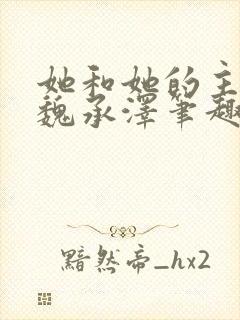 她和她的主
魏承泽笔趣
黯然帝_hx2